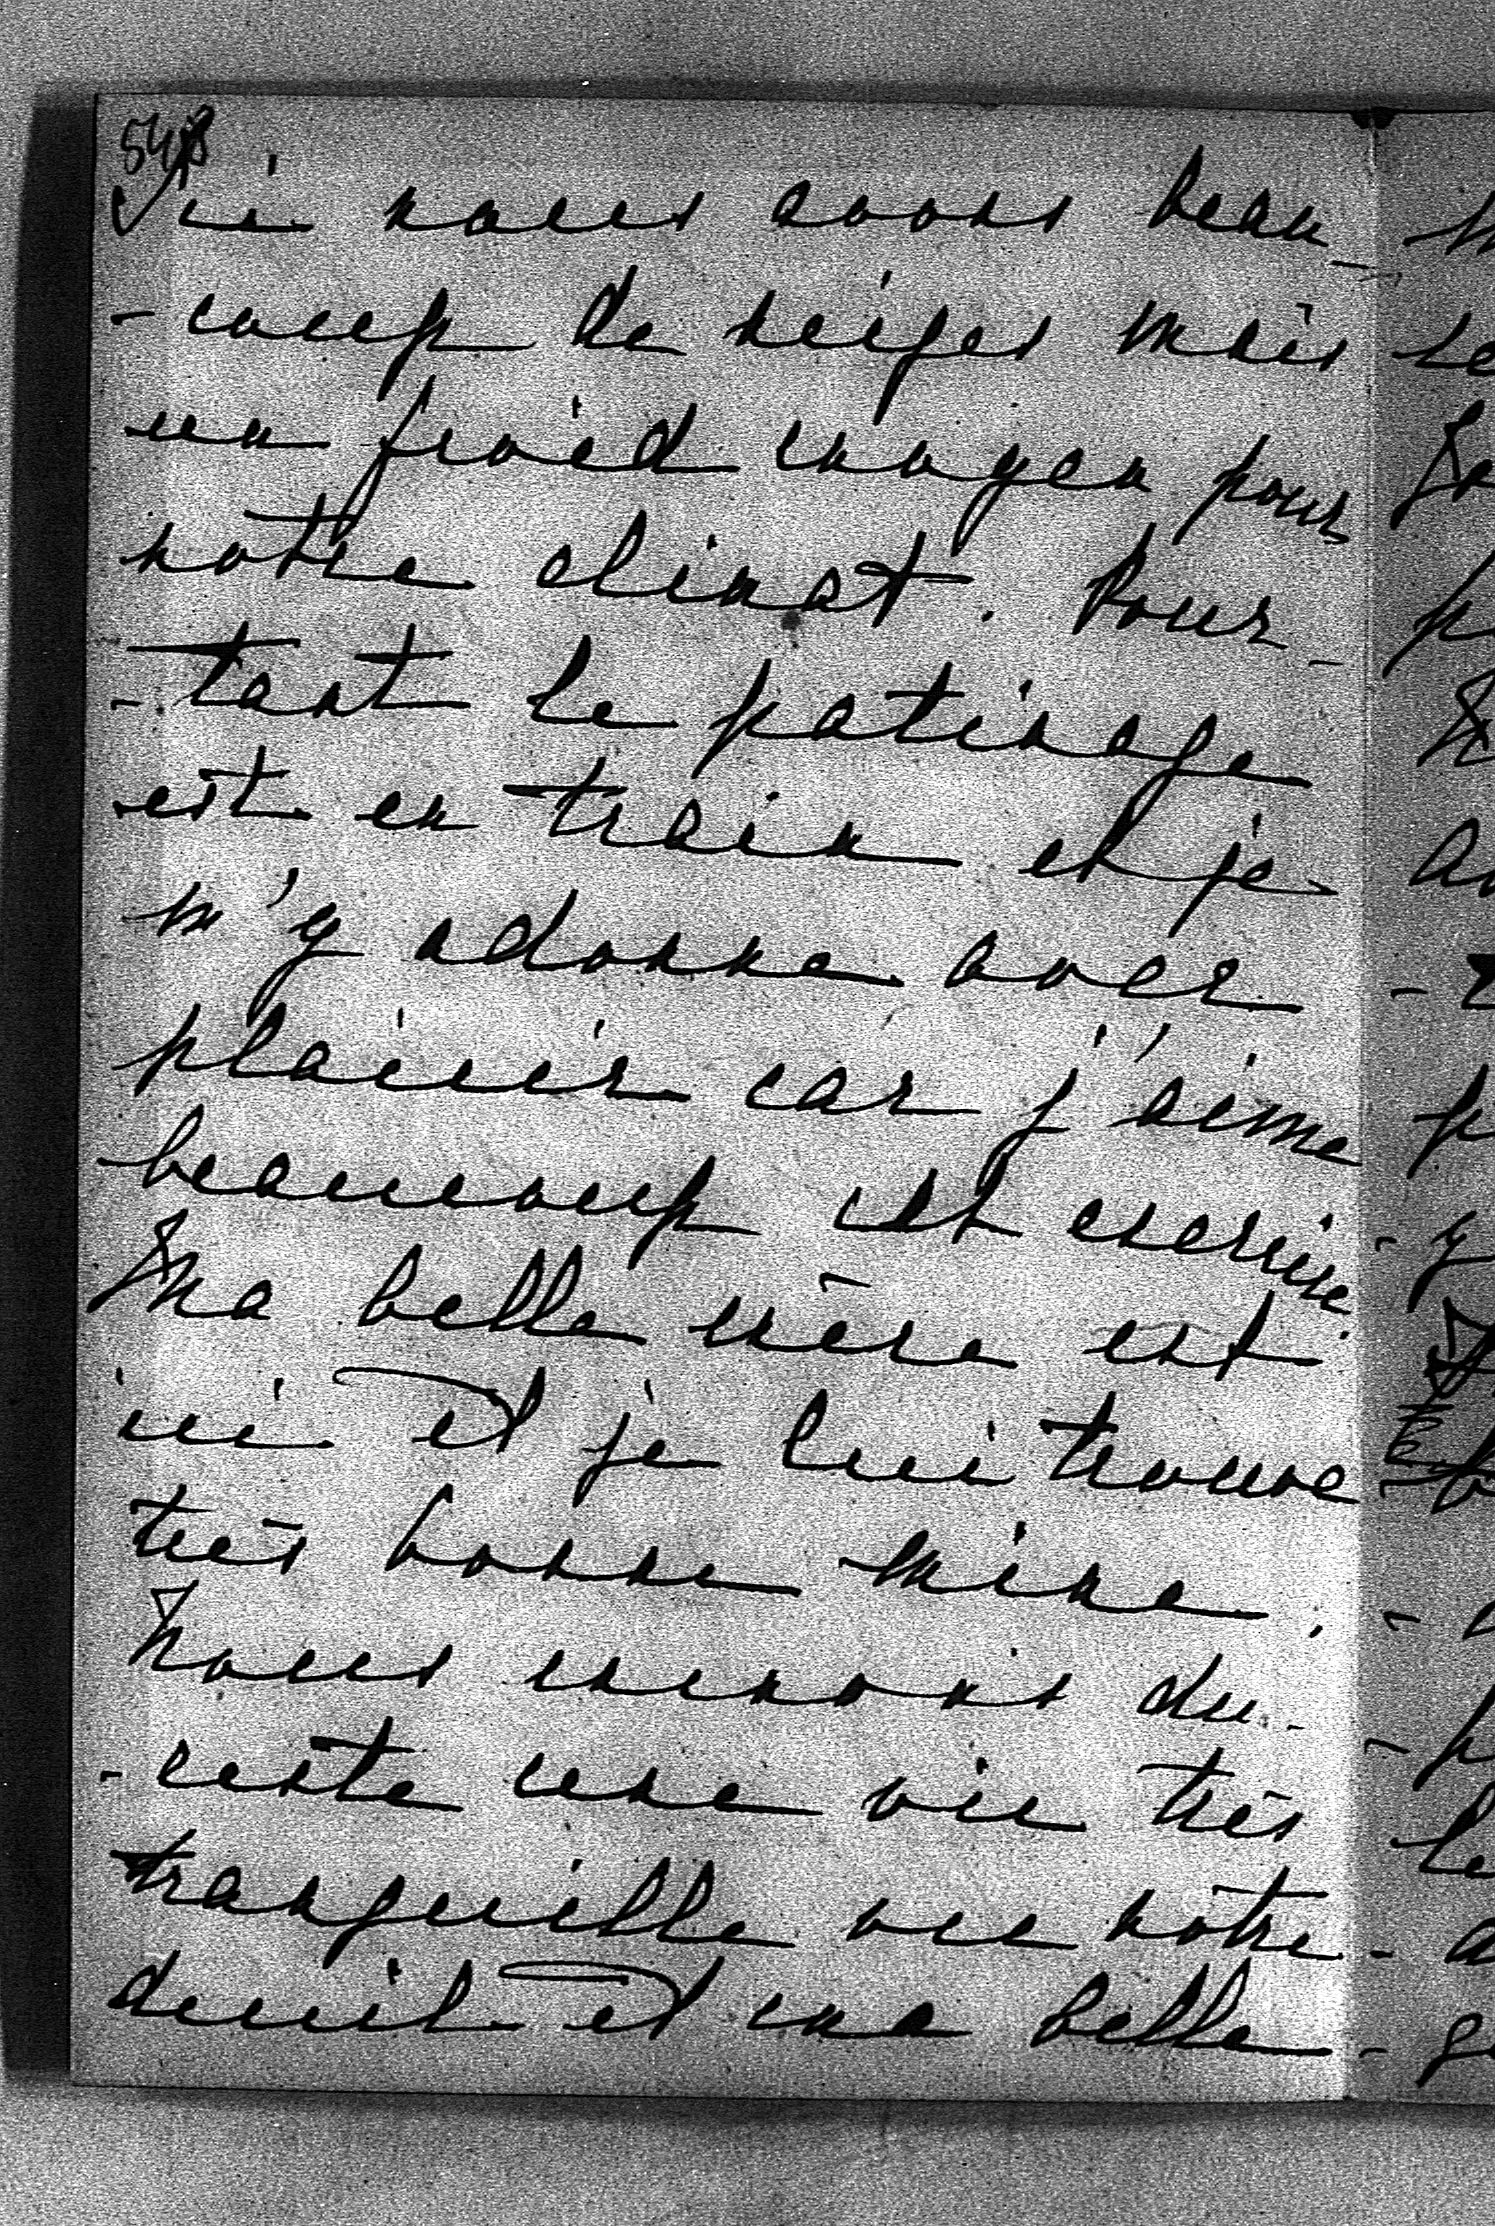 548
Ici nous avons beau-
-coup de neiges mais
un froid moyen pour
notre climat. Pour-
-tant le patinage
est en train et je
m'y adonne avec
plaisir car j'aime
beaucoup cet exercice.
Ma belle mère est
ici et je lui trouve
très bonne mine.
Nous menons du
-reste une vie très
tranquille vu notre
deuil et ma belle-